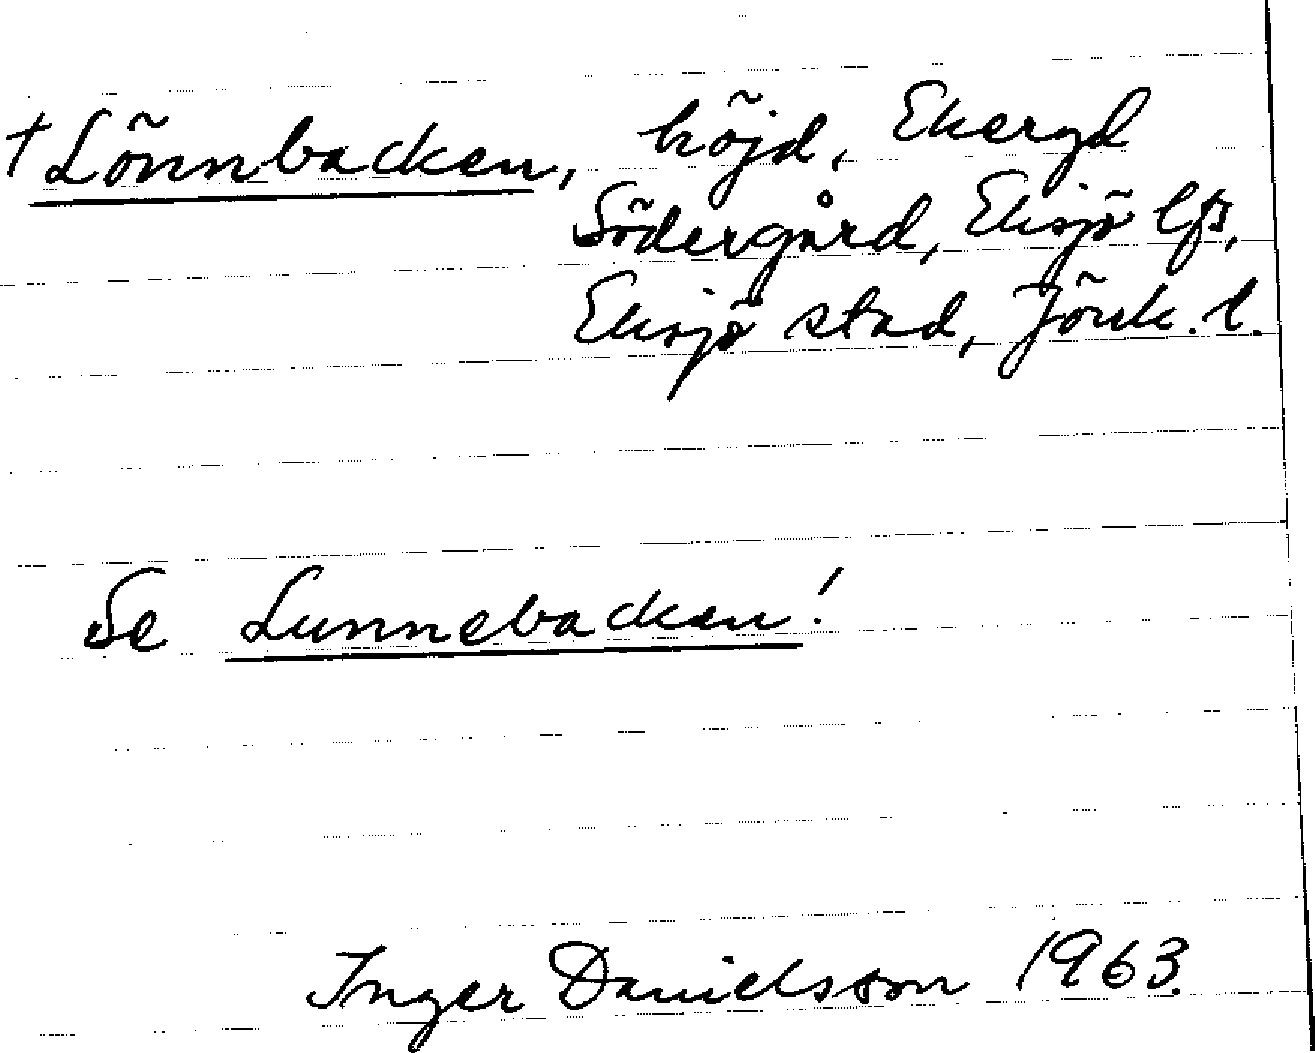 † Lönnbacken, höjd, Ekeryd
Södergård, Eksjö lfs,
Eksjö stad, Jönk. l.
Se Lunnebacken!
Inger Danielsson 1963.